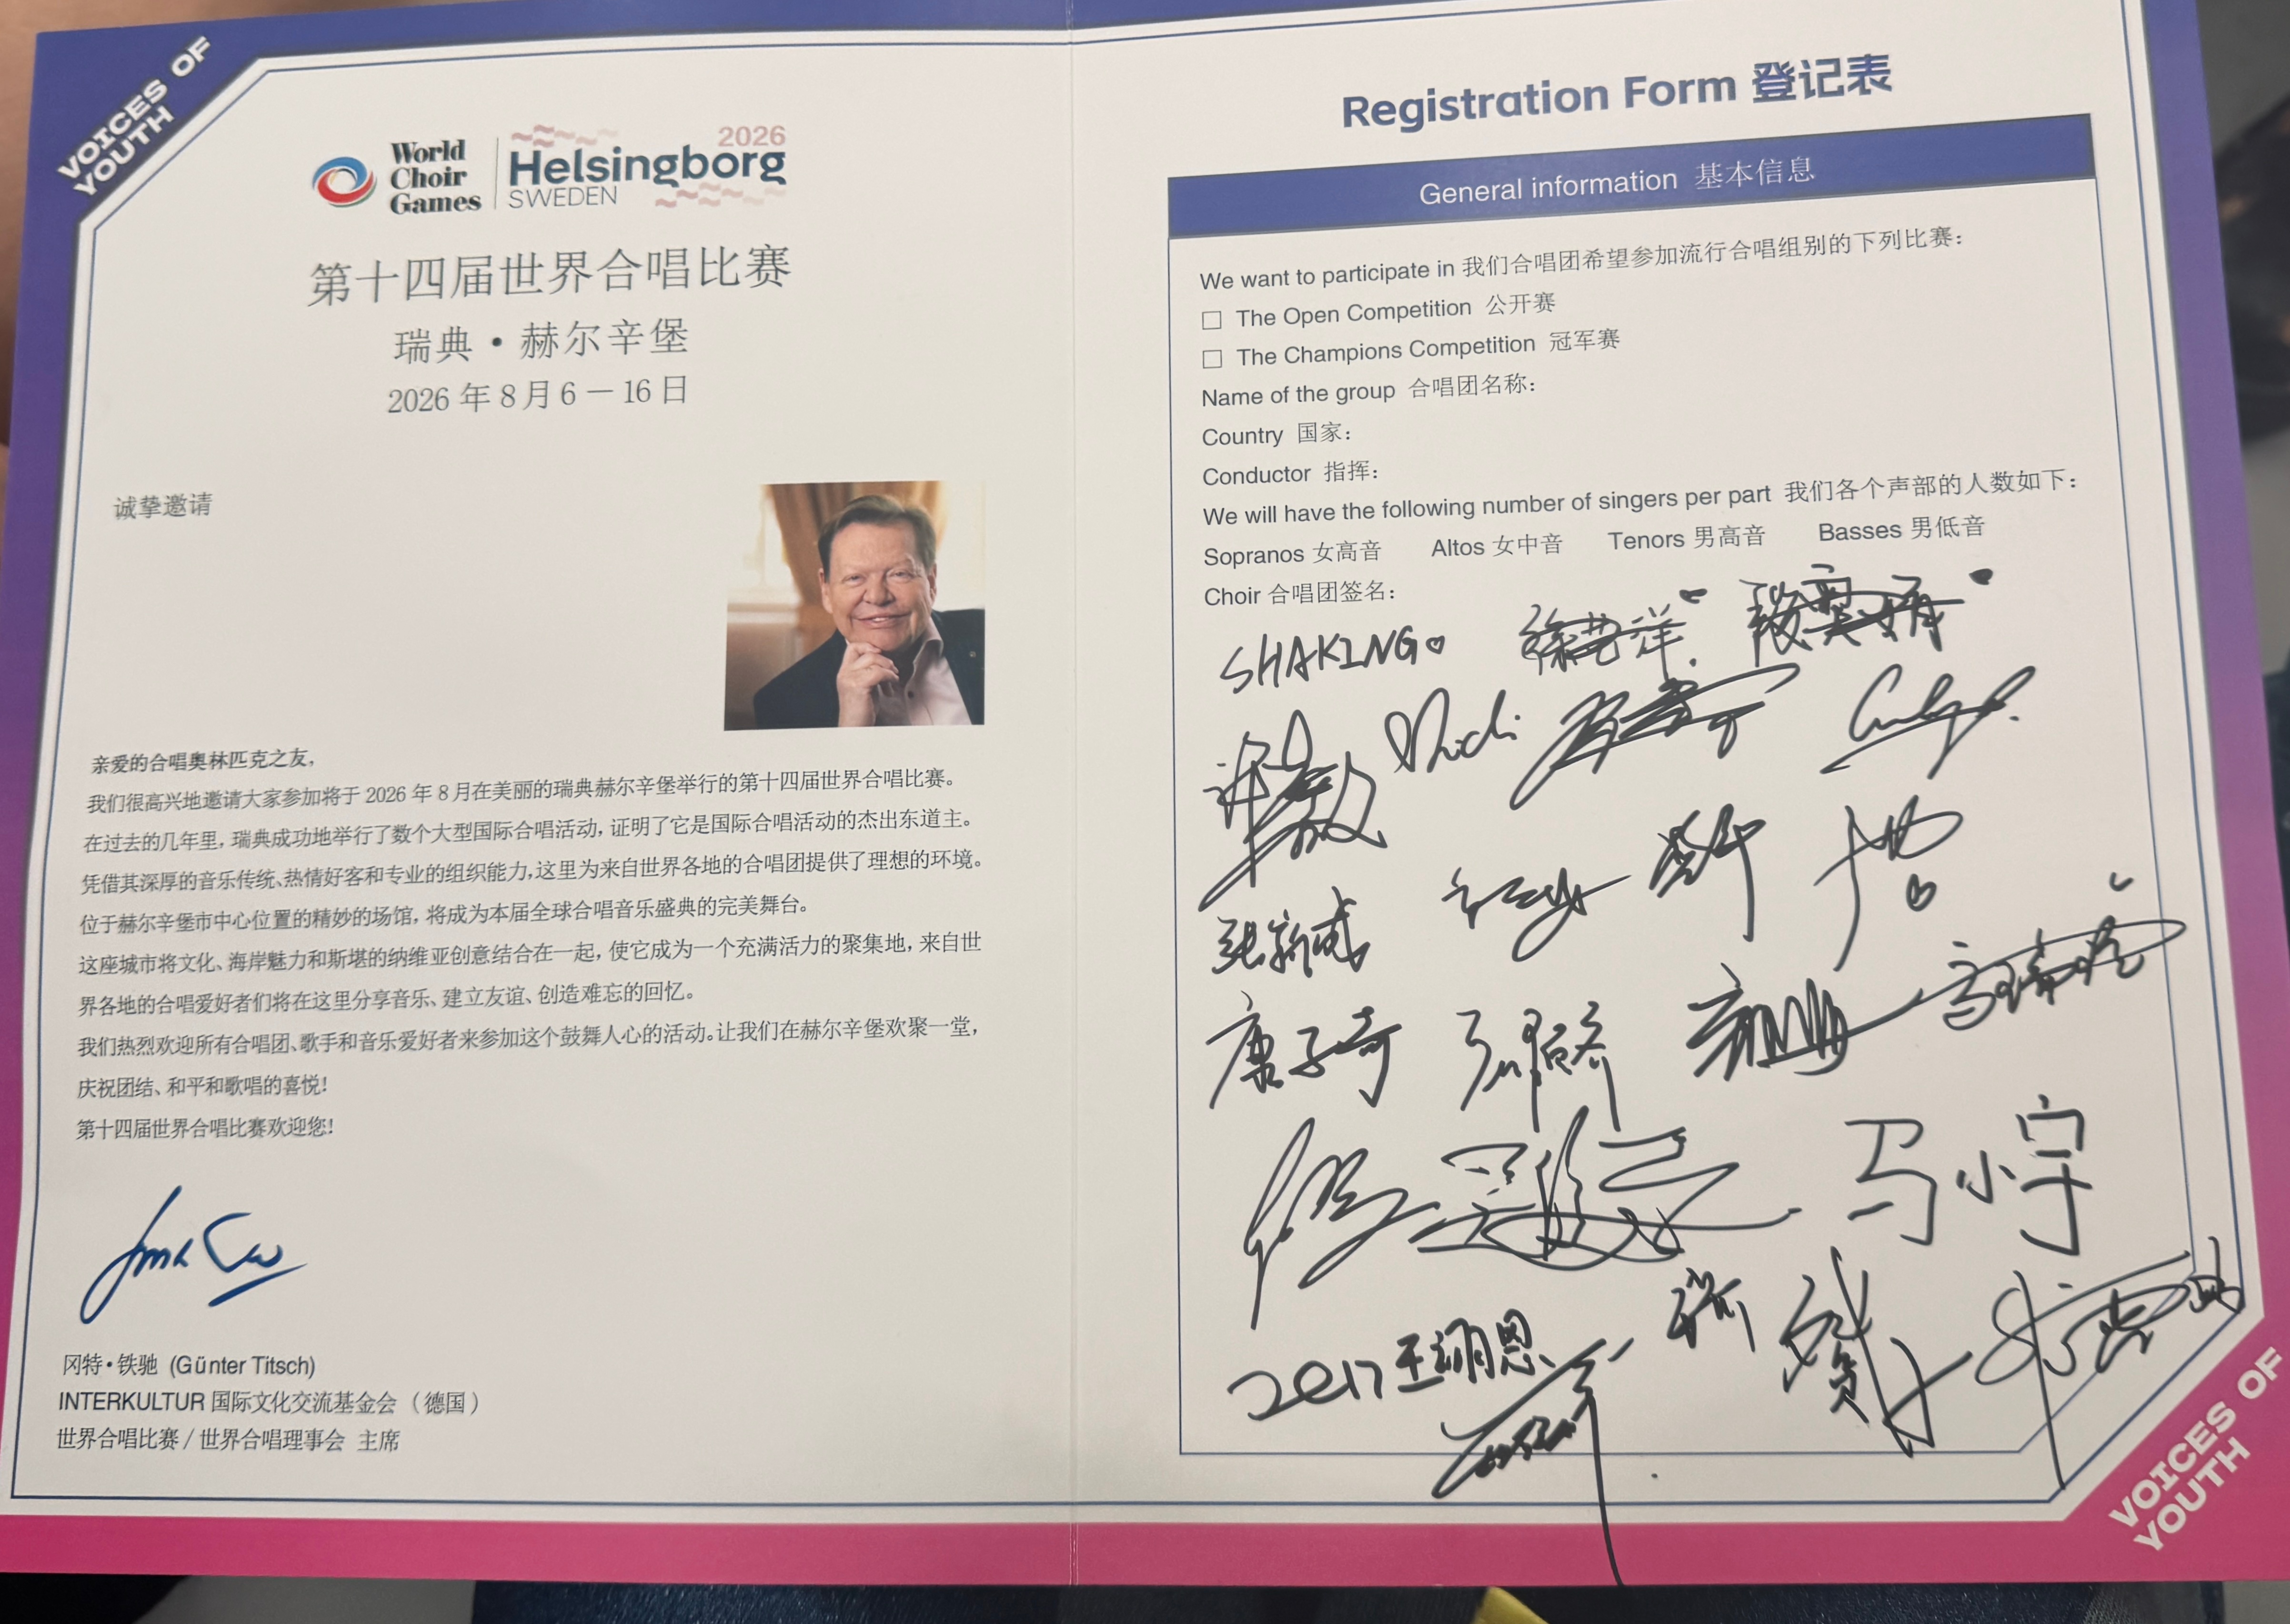 VOICES OF
YOUTH
World
Choir
Games
2026
Helsingborg
SWEDEN
第十四届世界合唱比赛
瑞典·赫尔辛堡
2026 年 8 月 6 — 16 日
诚挚邀请
亲爱的合唱奥林匹克之友,
我们很高兴地邀请大家参加将于 2026 年 8 月在美丽的瑞典赫尔辛堡举行的第十四届世界合唱比赛。
在过去的几年里, 瑞典成功地举行了数个大型国际合唱活动, 证明了它是国际合唱活动的杰出东道主。
凭借其深厚的音乐传统、热情好客和专业的组织能力, 这里为来自世界各地的合唱团提供了理想的环境。
位于赫尔辛堡市中心位置的精妙的场馆, 将成为本届全球合唱音乐盛典的完美舞台。
这座城市将文化、海岸魅力和斯堪的纳维亚创意结合在一起, 使它成为一个充满活力的聚集地, 来自世
界各地的合唱爱好者们将在这里分享音乐、建立友谊、创造难忘的回忆。
我们热烈欢迎所有合唱团、歌手和音乐爱好者来参加这个鼓舞人心的活动。让我们在赫尔辛堡欢聚一堂,
庆祝团结、和平和歌唱的喜悦!
第十四届世界合唱比赛欢迎您!
冈特·铁驰 (Günter Titsch)
INTERKULTUR 国际文化交流基金会（德国）
世界合唱比赛 / 世界合唱理事会 主席
Registration Form 登记表
General information 基本信息
We want to participate in 我们合唱团希望参加流行合唱组别的下列比赛:
□ The Open Competition 公开赛
□ The Champions Competition 冠军赛
Name of the group 合唱团名称:
Country 国家:
Conductor 指挥:
We will have the following number of singers per part 我们各个声部的人数如下:
Sopranos 女高音 Altos 女中音 Tenors 男高音 Basses 男低音
Choir 合唱团签名:
SHAKING
张新成
唐子奇
马小宇
2017 王翊恩
VOICES OF
YOUTH